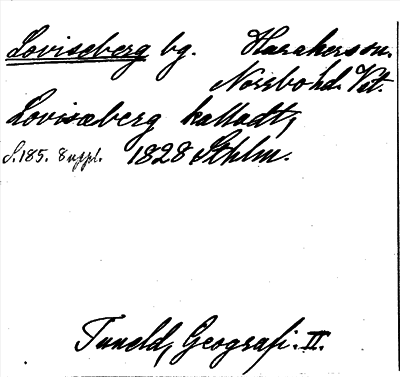 Loviseberg bg. Harakers sn.
Norrbo hd. Vst.
Lovisæberg kalladt,
S. 185. Suppl. 1828 Sthlm.
Tuneld, Geografi. II.